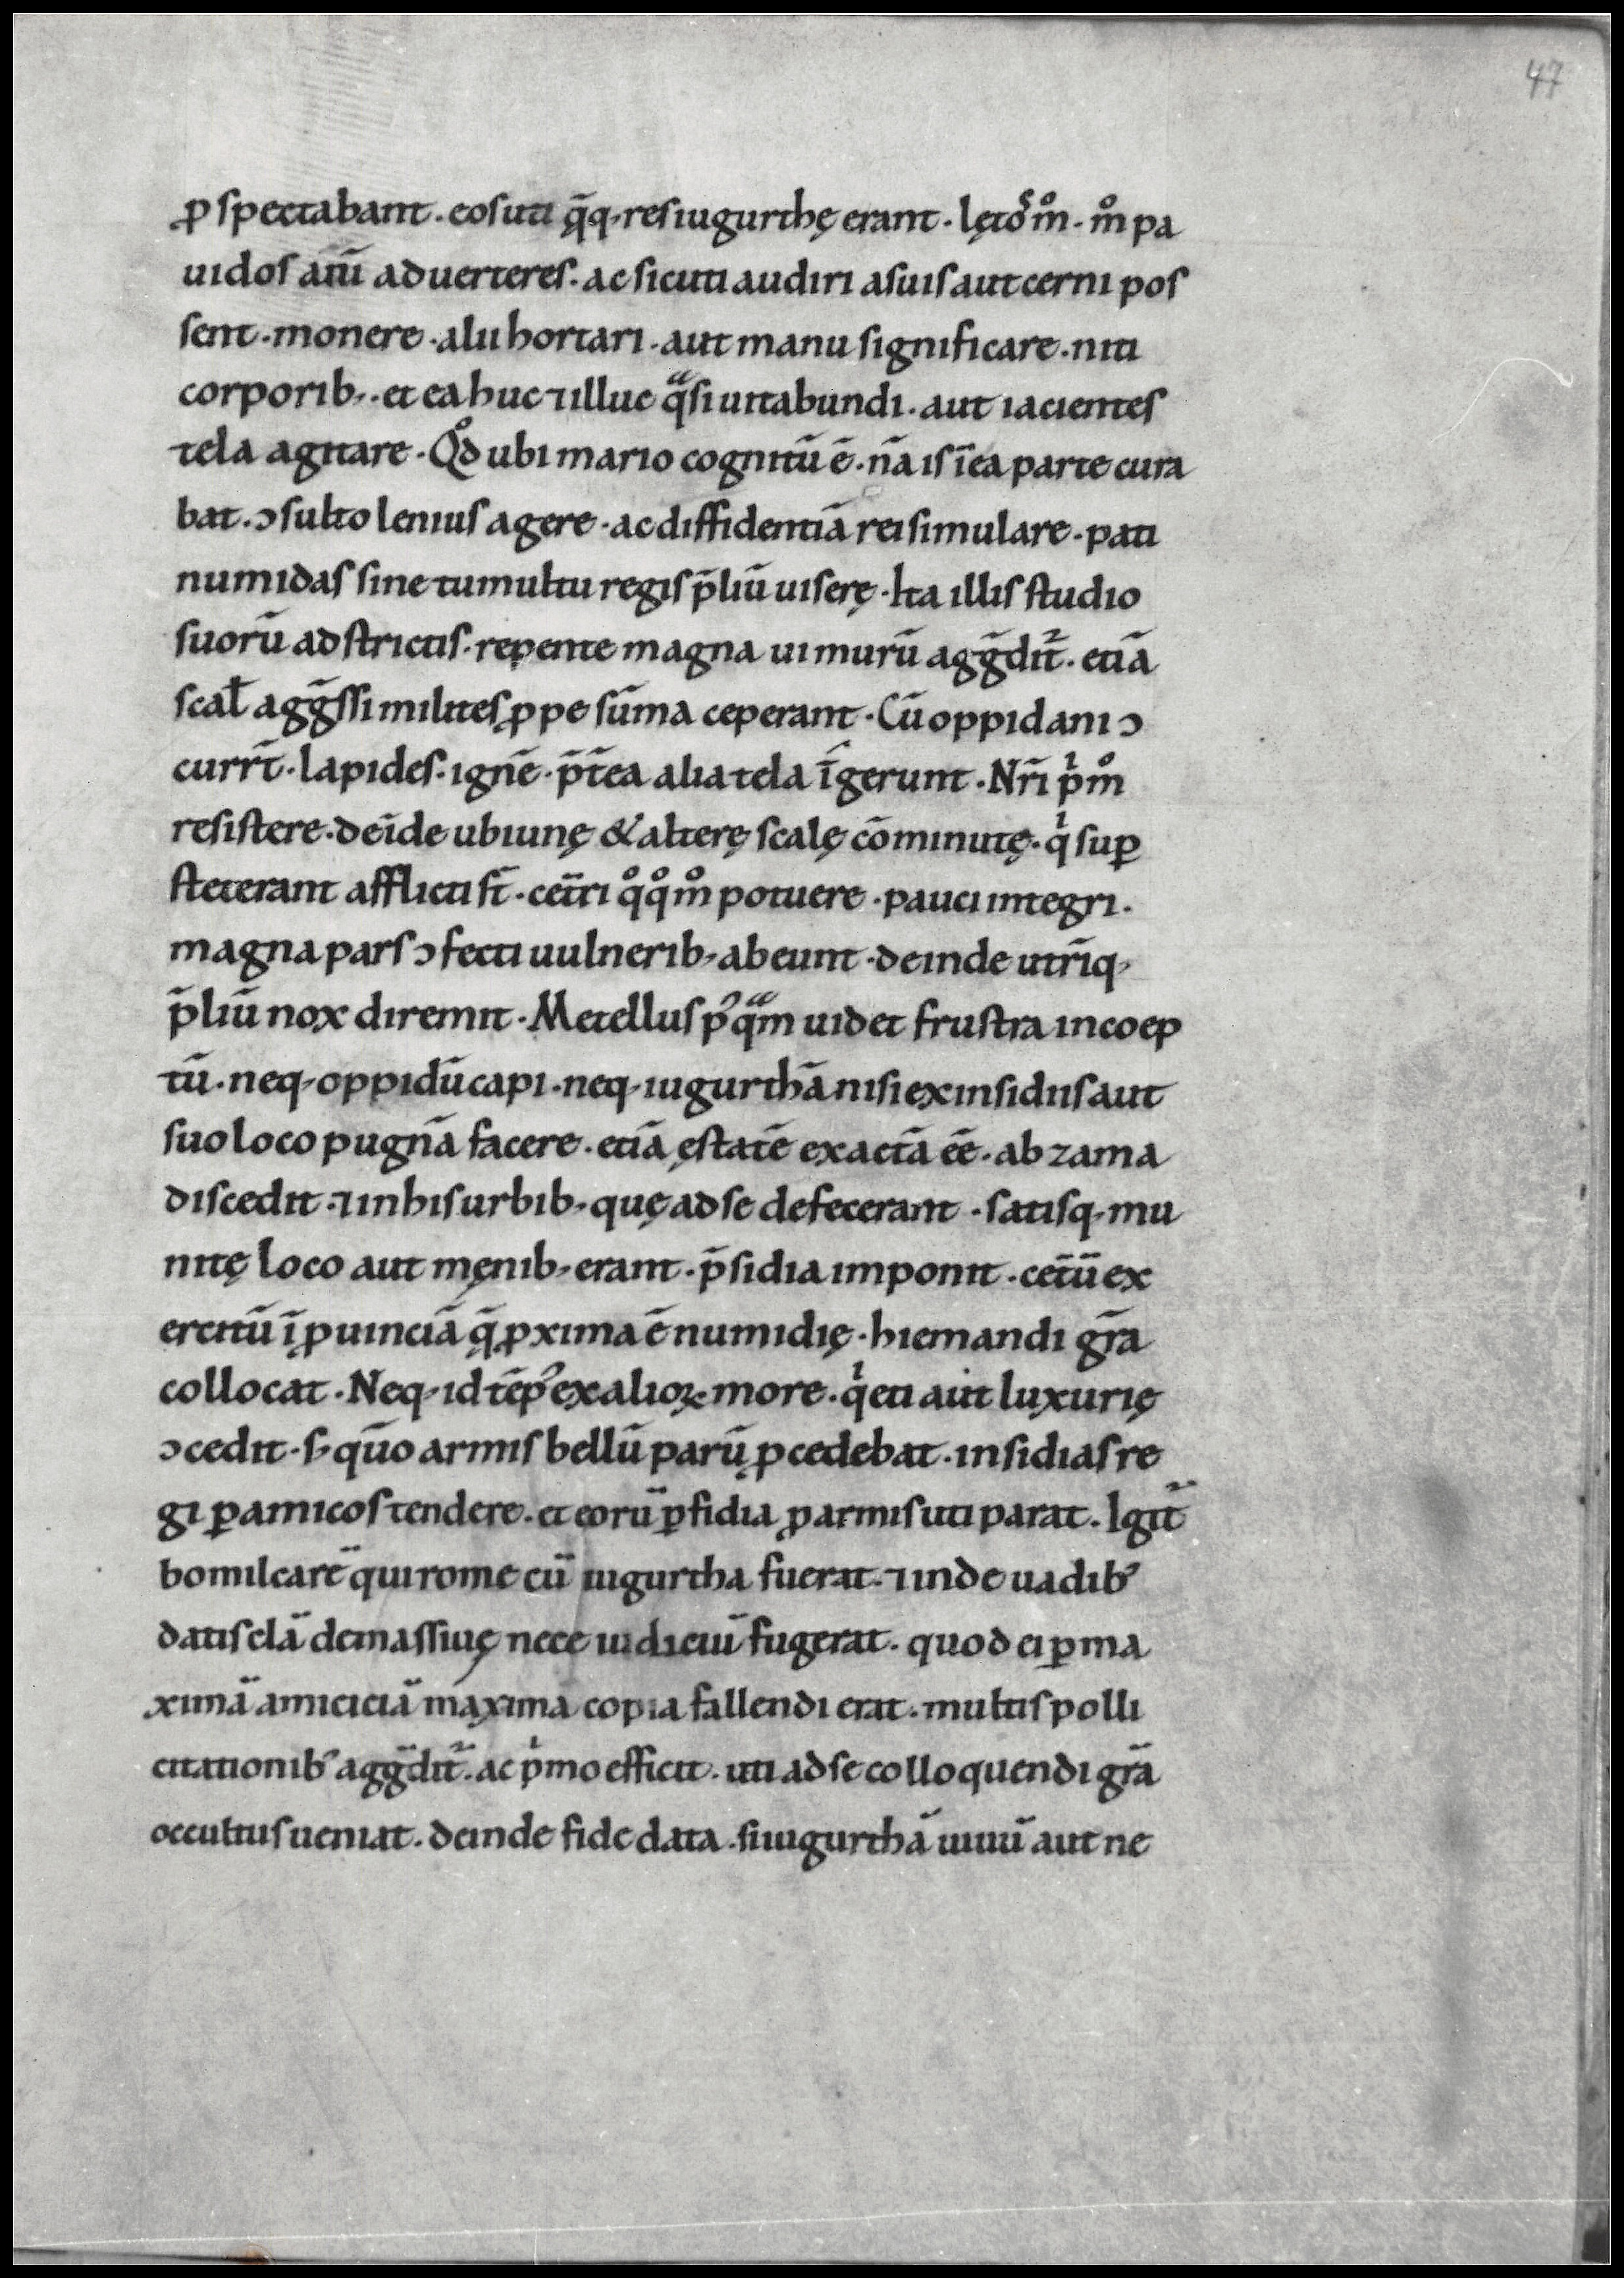 47
ꝓspectabant. eos uti q̄q; res iugurthę erant. lęto͛ mͦ. mͦ pa
uidos aiū aduerteres. ac sicuti audiri a suis aut cerni pos
sent. monere. alii hortari. aut manu significare. niti
corporib;. et ea huc ⁊ illuc qͣsi uitabundi. aut iacientes
tela agitare. Qͦd ubi mario cognitū ē. nā is ī ea parte cura
bat. ↄsulto lenius agere. ac diffidentiā rei simulare. pati
numidas sine tumultu regis p̄liū uiserę. Ita illis studio
suorū adstrictis. repente magna ui murū agḡdit᷑. etiā
scał agḡssi milites ꝓpe sūma ceperant. Cū oppidani ↄ
curr̄t. lapides. ignē. p̄t̄ea alia tela īgerunt. Nr̄i pⁱmͦ
resistere. deīde ubi unę & alterę scalę cōminutę. qⁱ suꝑ
steterant afflicti st̄. cet̄ri qͦqͦ mͦ potuere. pauci integri.
magna pars ↄfecti uulnerib; abeunt. deinde utrīq;
p̄liū nox diremit. Metellus pꝰqͣm uidet frustra incoep
tū. neq; oppidū capi. neq; iugurthā nisi ex insidiis aut
suo loco pugnā facere. etiā ęstatē exactā eē. ab zama
discedit. ⁊ in his urbib; quę ad se defecerant. satisq; mu
nitę loco aut męnib; erant. p̄sidia imponit. cet̄ū ex
ercitū ī ꝓuinciā q̄ ꝓxima ē numidię. hiemandi gr̄a
collocat. Neq; id tēpꝰ ex alioꝝ more. qⁱeti aut luxurię
ↄcedit. s; qūo armis bellū parū ꝓcedebat. insidias re
gi ꝑ amicos tendere. et eorū ꝑfidia ꝓ armis uti parat. Igit᷑
bomilcarē qui rome cū iugurtha fuerat. ⁊ inde uadibꝰ
datis clā de massiuę nece iudiciū fugerat. quod ei ꝑ ma
ximā amiciciā maxima copia fallendi erat. multis polli
citationibꝰ agḡdit᷑. ac pⁱmo efficit. uti ad se colloquendi gr̄a
occultus ueniat. deinde fide data. si iugurthā uiuū aut ne